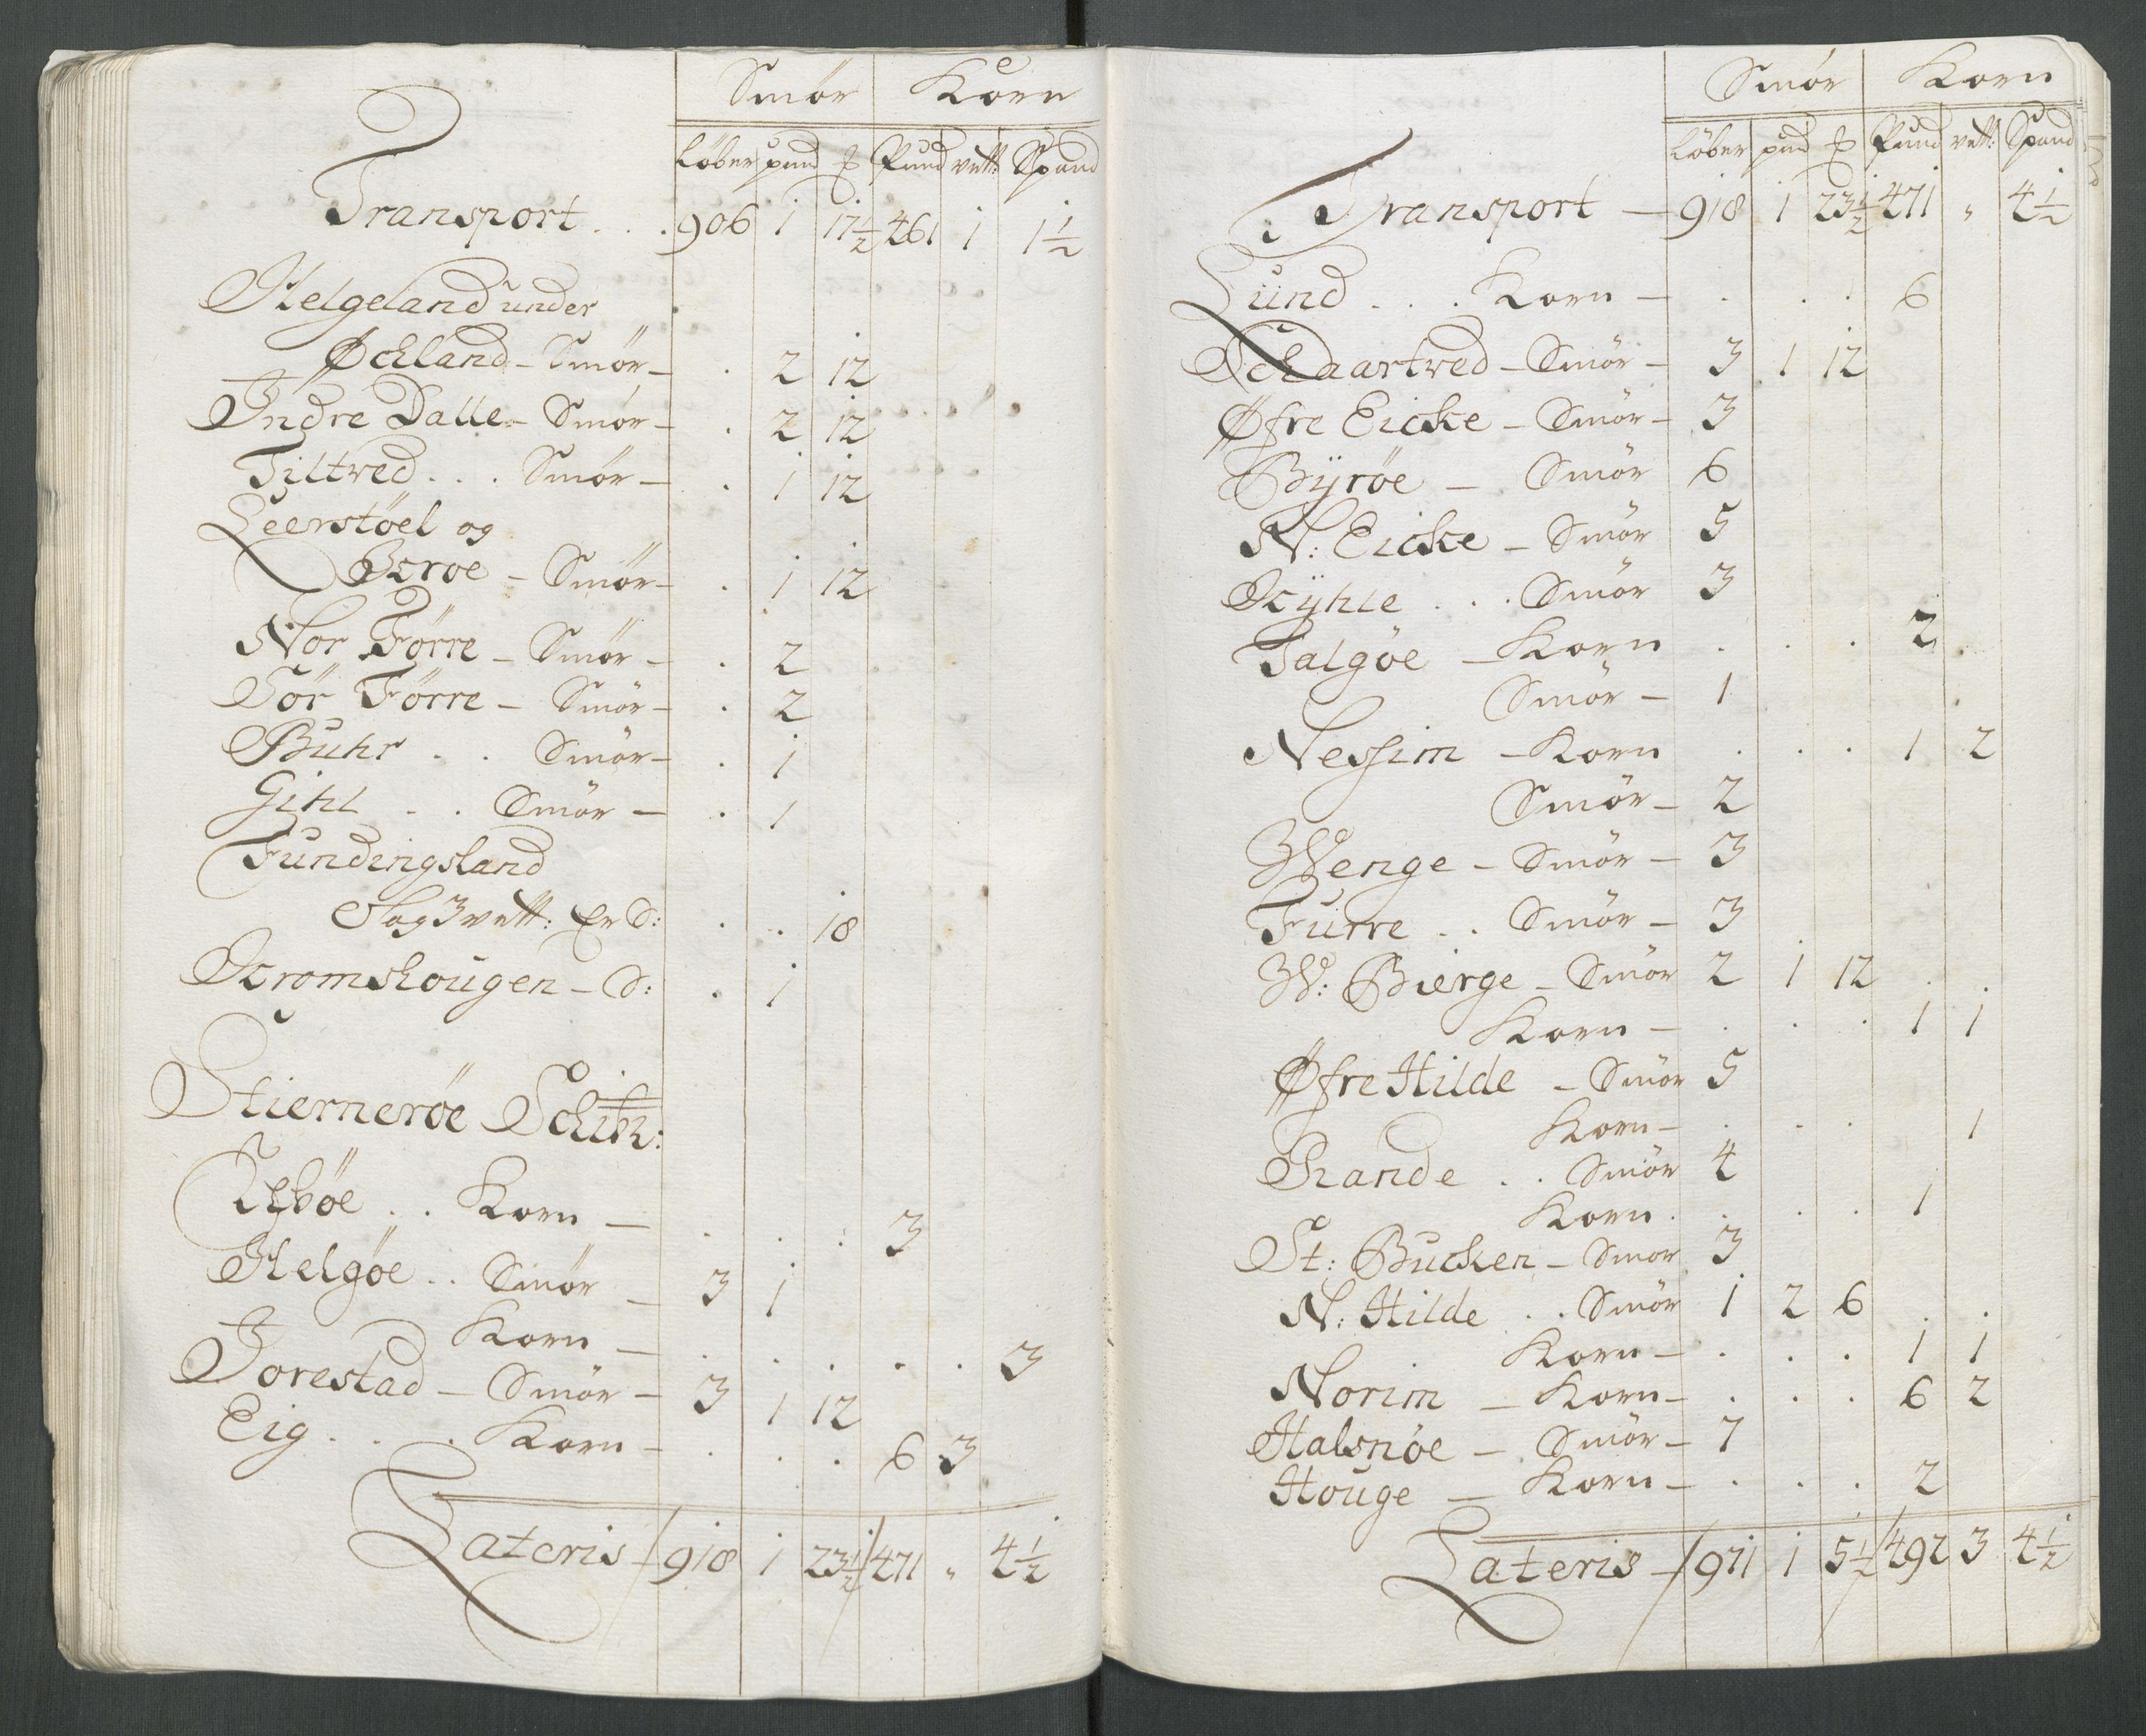 Smör Korn
Löber pund ℔ Pund vett: Spand
Transport . . . 906 1 17½ 461 1 1½
Helgeland under
Øckland - Smör - . 2 12
Indre Dalle - Smör - . 2 12
Tiltved . . . Smör - . 1 12
Leerstöel og
Boroe - Smör - . 1 12
Nor Förre - Smör - . 2
Sör Förre - Smör - . 2
Buhr . . Smör - . 1
Gihl . . Smör - . 1
Fundingsland
Slag 3 vett: Er S: . . 18
Schougen - S: . 1
Stiernerøe Schib:
Eschöe . . Korn - . . . 3
Helgöe . . Smör - 3 1
Korn - . . . . . 3
Jorestad - Smör - 3 1 12
Eig . . . Korn - . . . 6 3
Lateris 918 1 23½ 471 " 4½
Smör Korn
Löber pud ℔ Pund vett: Spand
Transport - 918 1 23½ 471 " 4½
Lund . . . Korn - . . . 6
Schaartved - Smör - 3 1 12
Øfre Eicke - Smör - 3
Byröe - Smör 6
N: Eicke - Smör 5
Schyhle . . . Smör 3
Talgöe - Korn . . . 2
Smör - 1
Nessim - Korn . . . 1 2
Smör - 2
Wenge - Smör - 3
Furre . . Smör - 3
W: Bierge - Smör 2 1 12
Korn - . . . 1 1
Øfre Hilde - Smör 5
Korn - . . . 1
Rande . . Smör 4
Korn . . . . 1
St: Bucken - Smör 3
N: Hilde . . Smör 1 2 6
Korn - . . . 1 1
Norim - Korn - . . . 6 2
Halsnöe - Smör - 7
Houge - Korn - . . . 2
Lateris - 971 1 5½ 492 3 4½